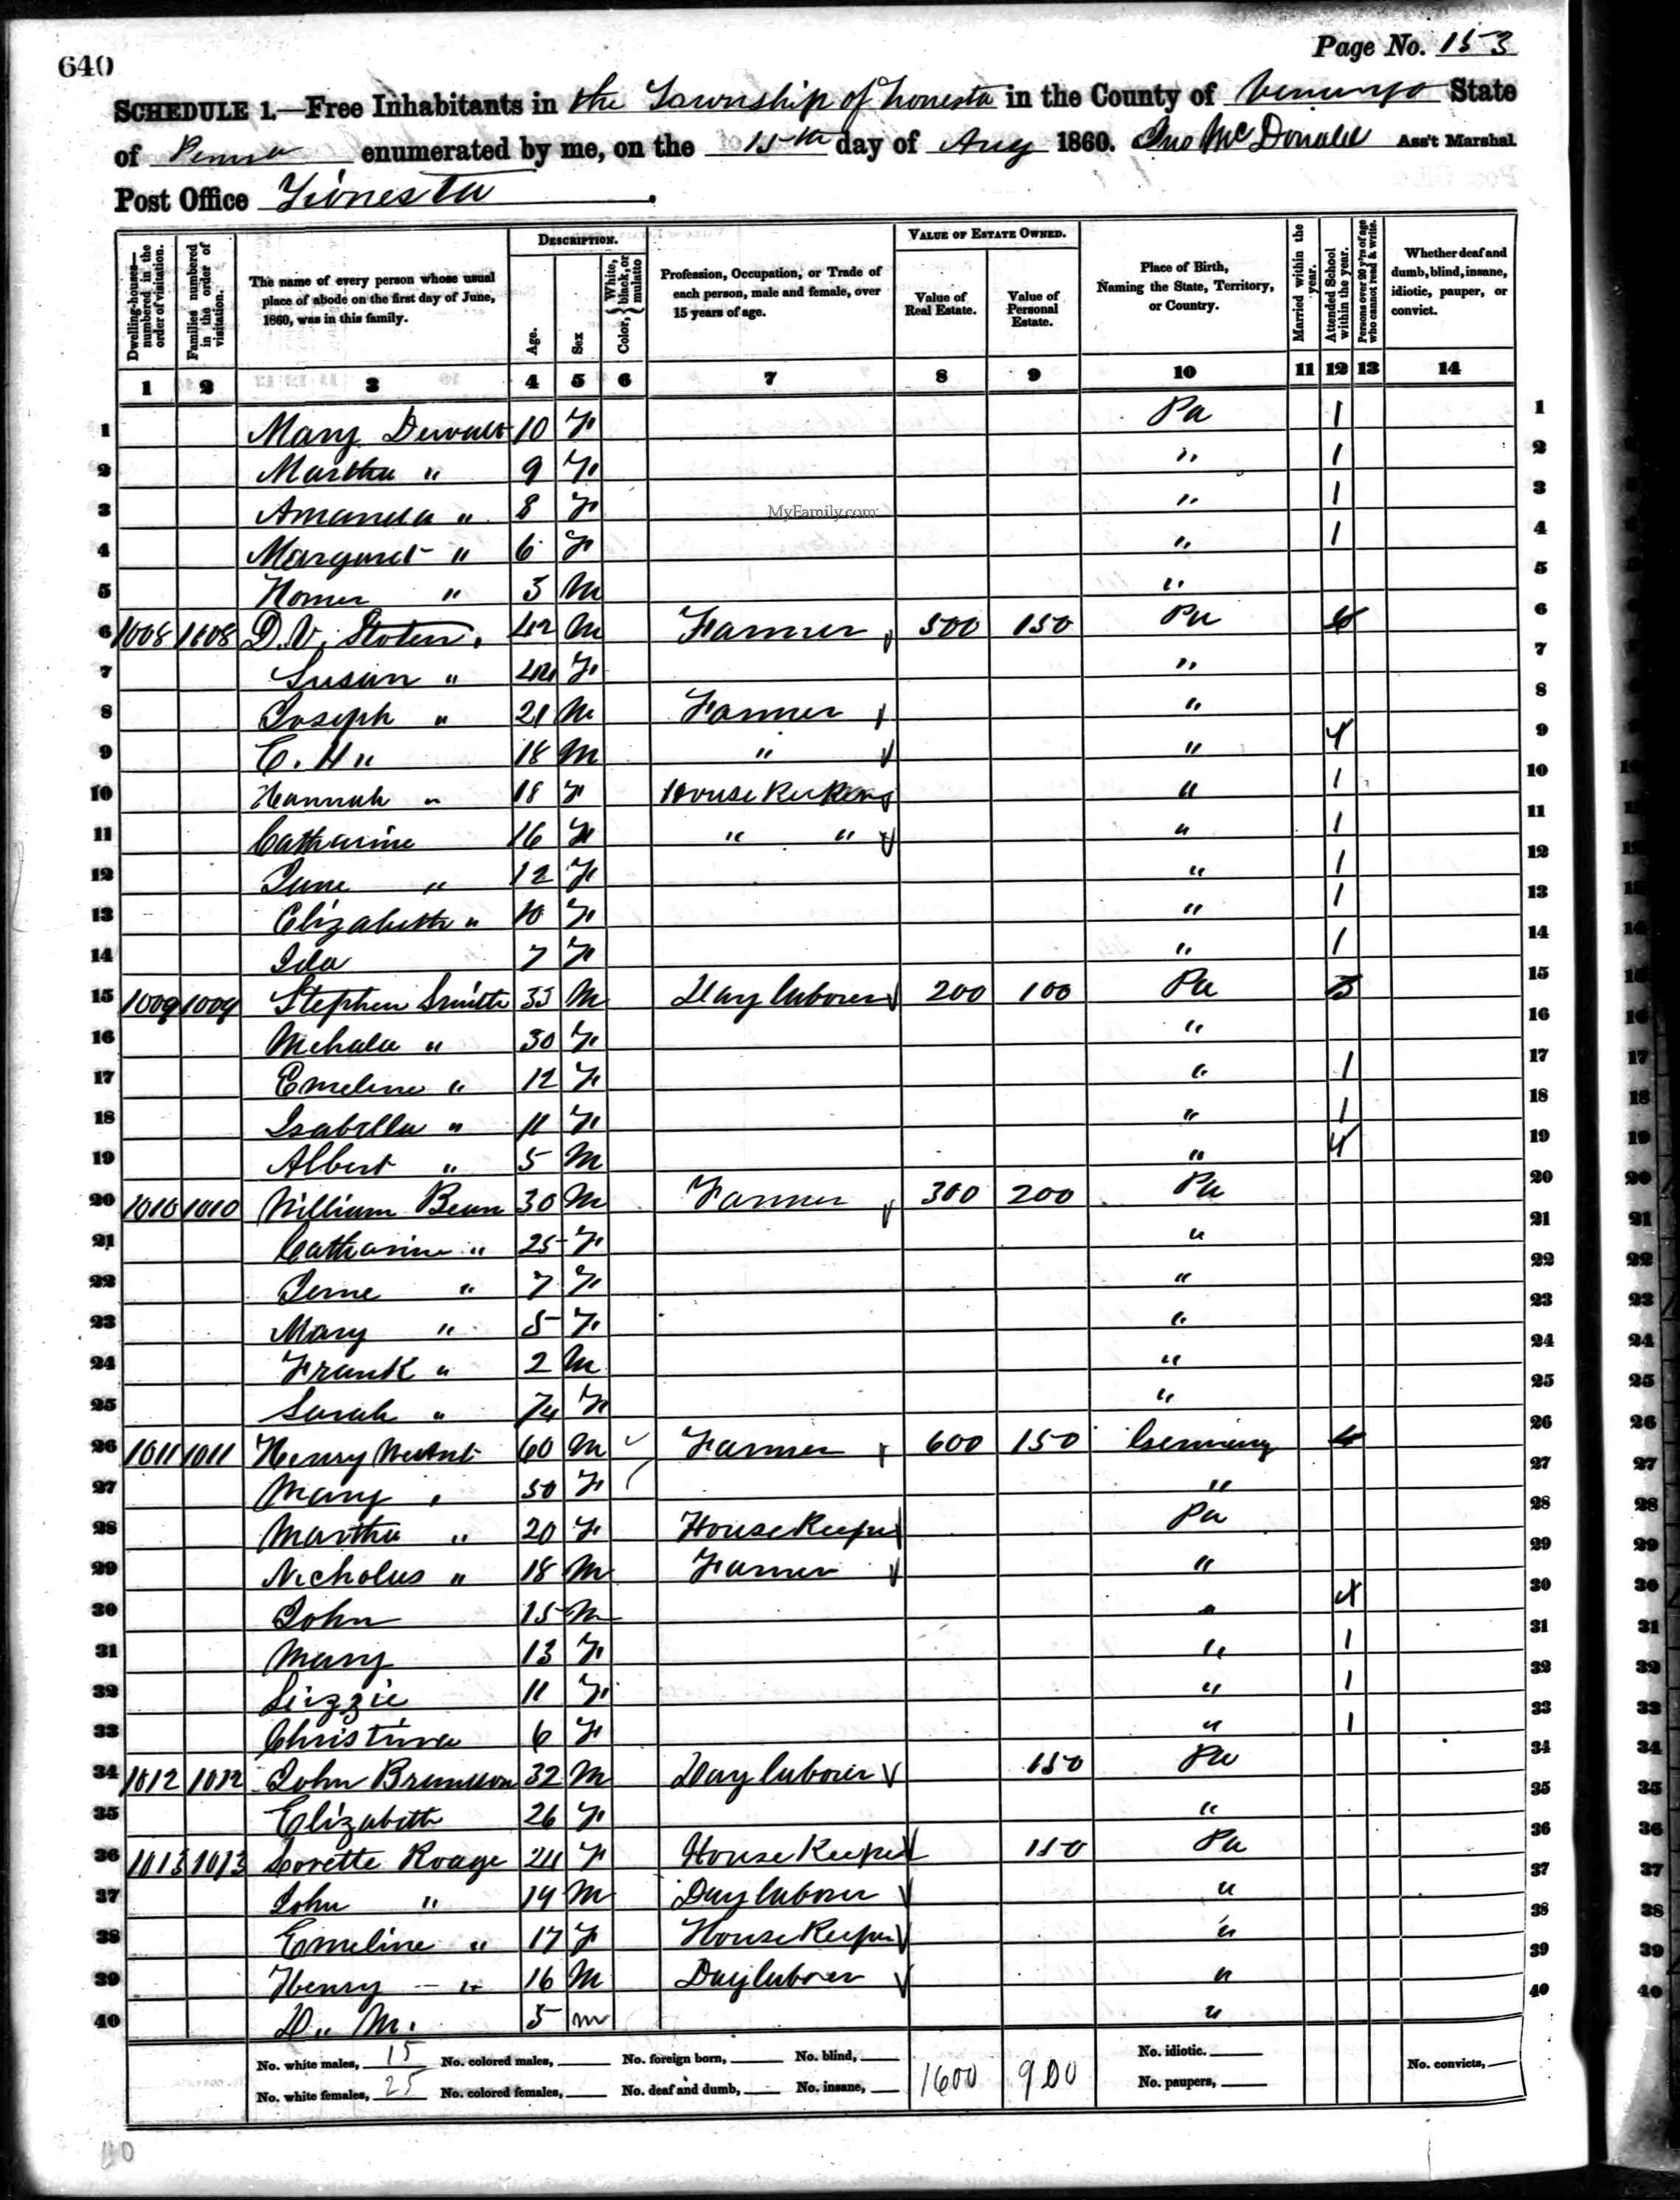 640
Page No. 153
SCHEDULE 1.—Free Inhabitants in the Township of Tionesta in the County of Venango State
of Penna enumerated by me, on the 15th day of Aug 1860. Jno McDonald Ass't Marshal
Post Office Tionesta
Dwelling-houses—numbered in the order of visitation.
Families numbered in the order of visitation.
The name of every person whose usual place of abode on the first day of June, 1860, was in this family.
DESCRIPTION.
Age.
Sex
Color, { White, black, or mulatto
Profession, Occupation, or Trade of each person, male and female, over 15 years of age.
VALUE OF ESTATE OWNED.
Value of Real Estate.
Value of Personal Estate.
Place of Birth, Naming the State, Territory, or Country.
Married within the year.
Attended School within the year.
Persons over 20 y'rs of age who cannot read & write.
Whether deaf and dumb, blind, insane, idiotic, pauper, or convict.
1 2 3 4 5 6 7 8 9 10 11 12 13 14
1 Mary 10 F Pa 1 1
2 Martha " 9 F " 1 2
3 Amanda " 8 F " 1 3
MyFamily.com
4 Margaret " 6 F " 1 4
5 Homer " 3 M " 5
6 1008 1008 D. V. 42 M Farmer 500 150 Pa 6
7 Susan " F " 7
8 Joseph " 21 M Farmer " 8
9 C. H " 18 M " " 9
10 Hannah " 18 F House Keeker " 1 10
11 Catharine 16 F " " " 1 11
12 Jane " 12 F " 1 12
13 Elizabeth " 10 F " 1 13
14 Ida 7 F " 1 14
15 1009 1009 Stephen Smith 33 M Day laborer 200 100 Pa 3 15
16 Mehala " 30 F " 16
17 Emeline " 12 F " 1 17
18 Isabella " 11 F " 1 18
19 Albert " 5 M " 19
20 1010 1010 William Bean 30 M Farmer 300 200 Pa 20
21 Catharine " 25 F " 21
22 " 7 F " 22
23 Mary " 5 F " 23
24 Frank " 2 M " 24
25 Sarah " 74 F " 25
26 1011 1011 Henry 60 M Farmer 600 150 Germany 26
27 Mary " 50 F " 27
28 Martha " 20 F House Keeper Pa 28
29 Nicholus " 18 M Farmer " 29
30 John 15 M " 30
31 Mary 13 F " 1 31
32 Lizzie 11 F " 1 32
33 Christina 6 F " 1 33
34 1012 1012 John 32 M Day laborer 150 Pa 34
35 Elizabeth 26 F " 35
36 1013 1013 Lovette Roage 24 F House Keeper 150 Pa 36
37 John " 19 M Day laborer " 37
38 Emeline " 17 F House Keeper " 38
39 Henry " 16 M Day laborer " 39
40 D " M. 5 m " 40
No. white males, 15 No. colored males, No. foreign born, No. blind, 1600 900 No. idiotic. No. convicts,
No. white females, 25 No. colored females, No. deaf and dumb, No. insane, No. paupers,
40